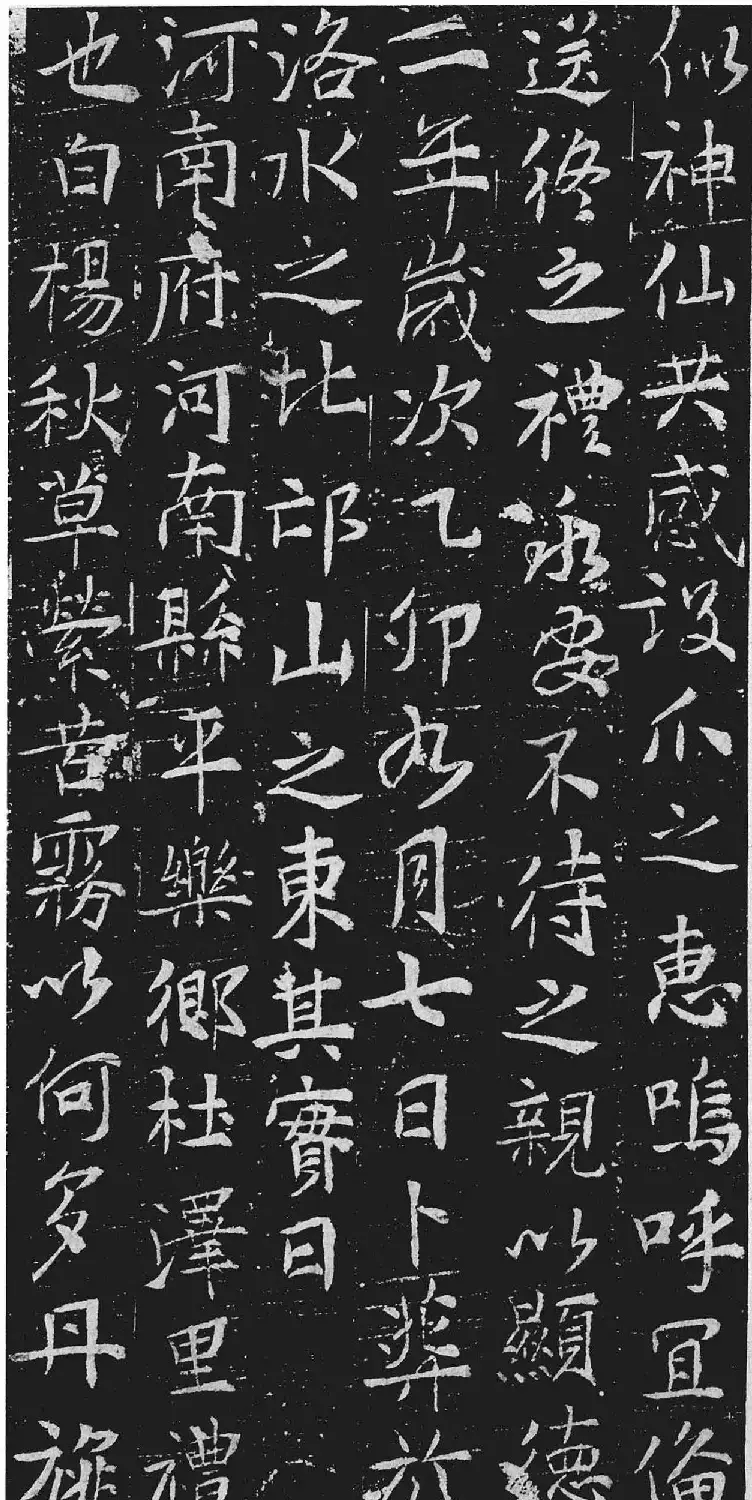 似神仙共感設爪之惠嗚呼冝俻
送終之禮永不待之親以顯德
二年歲次乙卯月七日卜葬於
洛水之北邙山之東其實曰
河南府河南縣平樂鄉杜澤里禮
也白楊秋草縈苦霧以何多丹旐